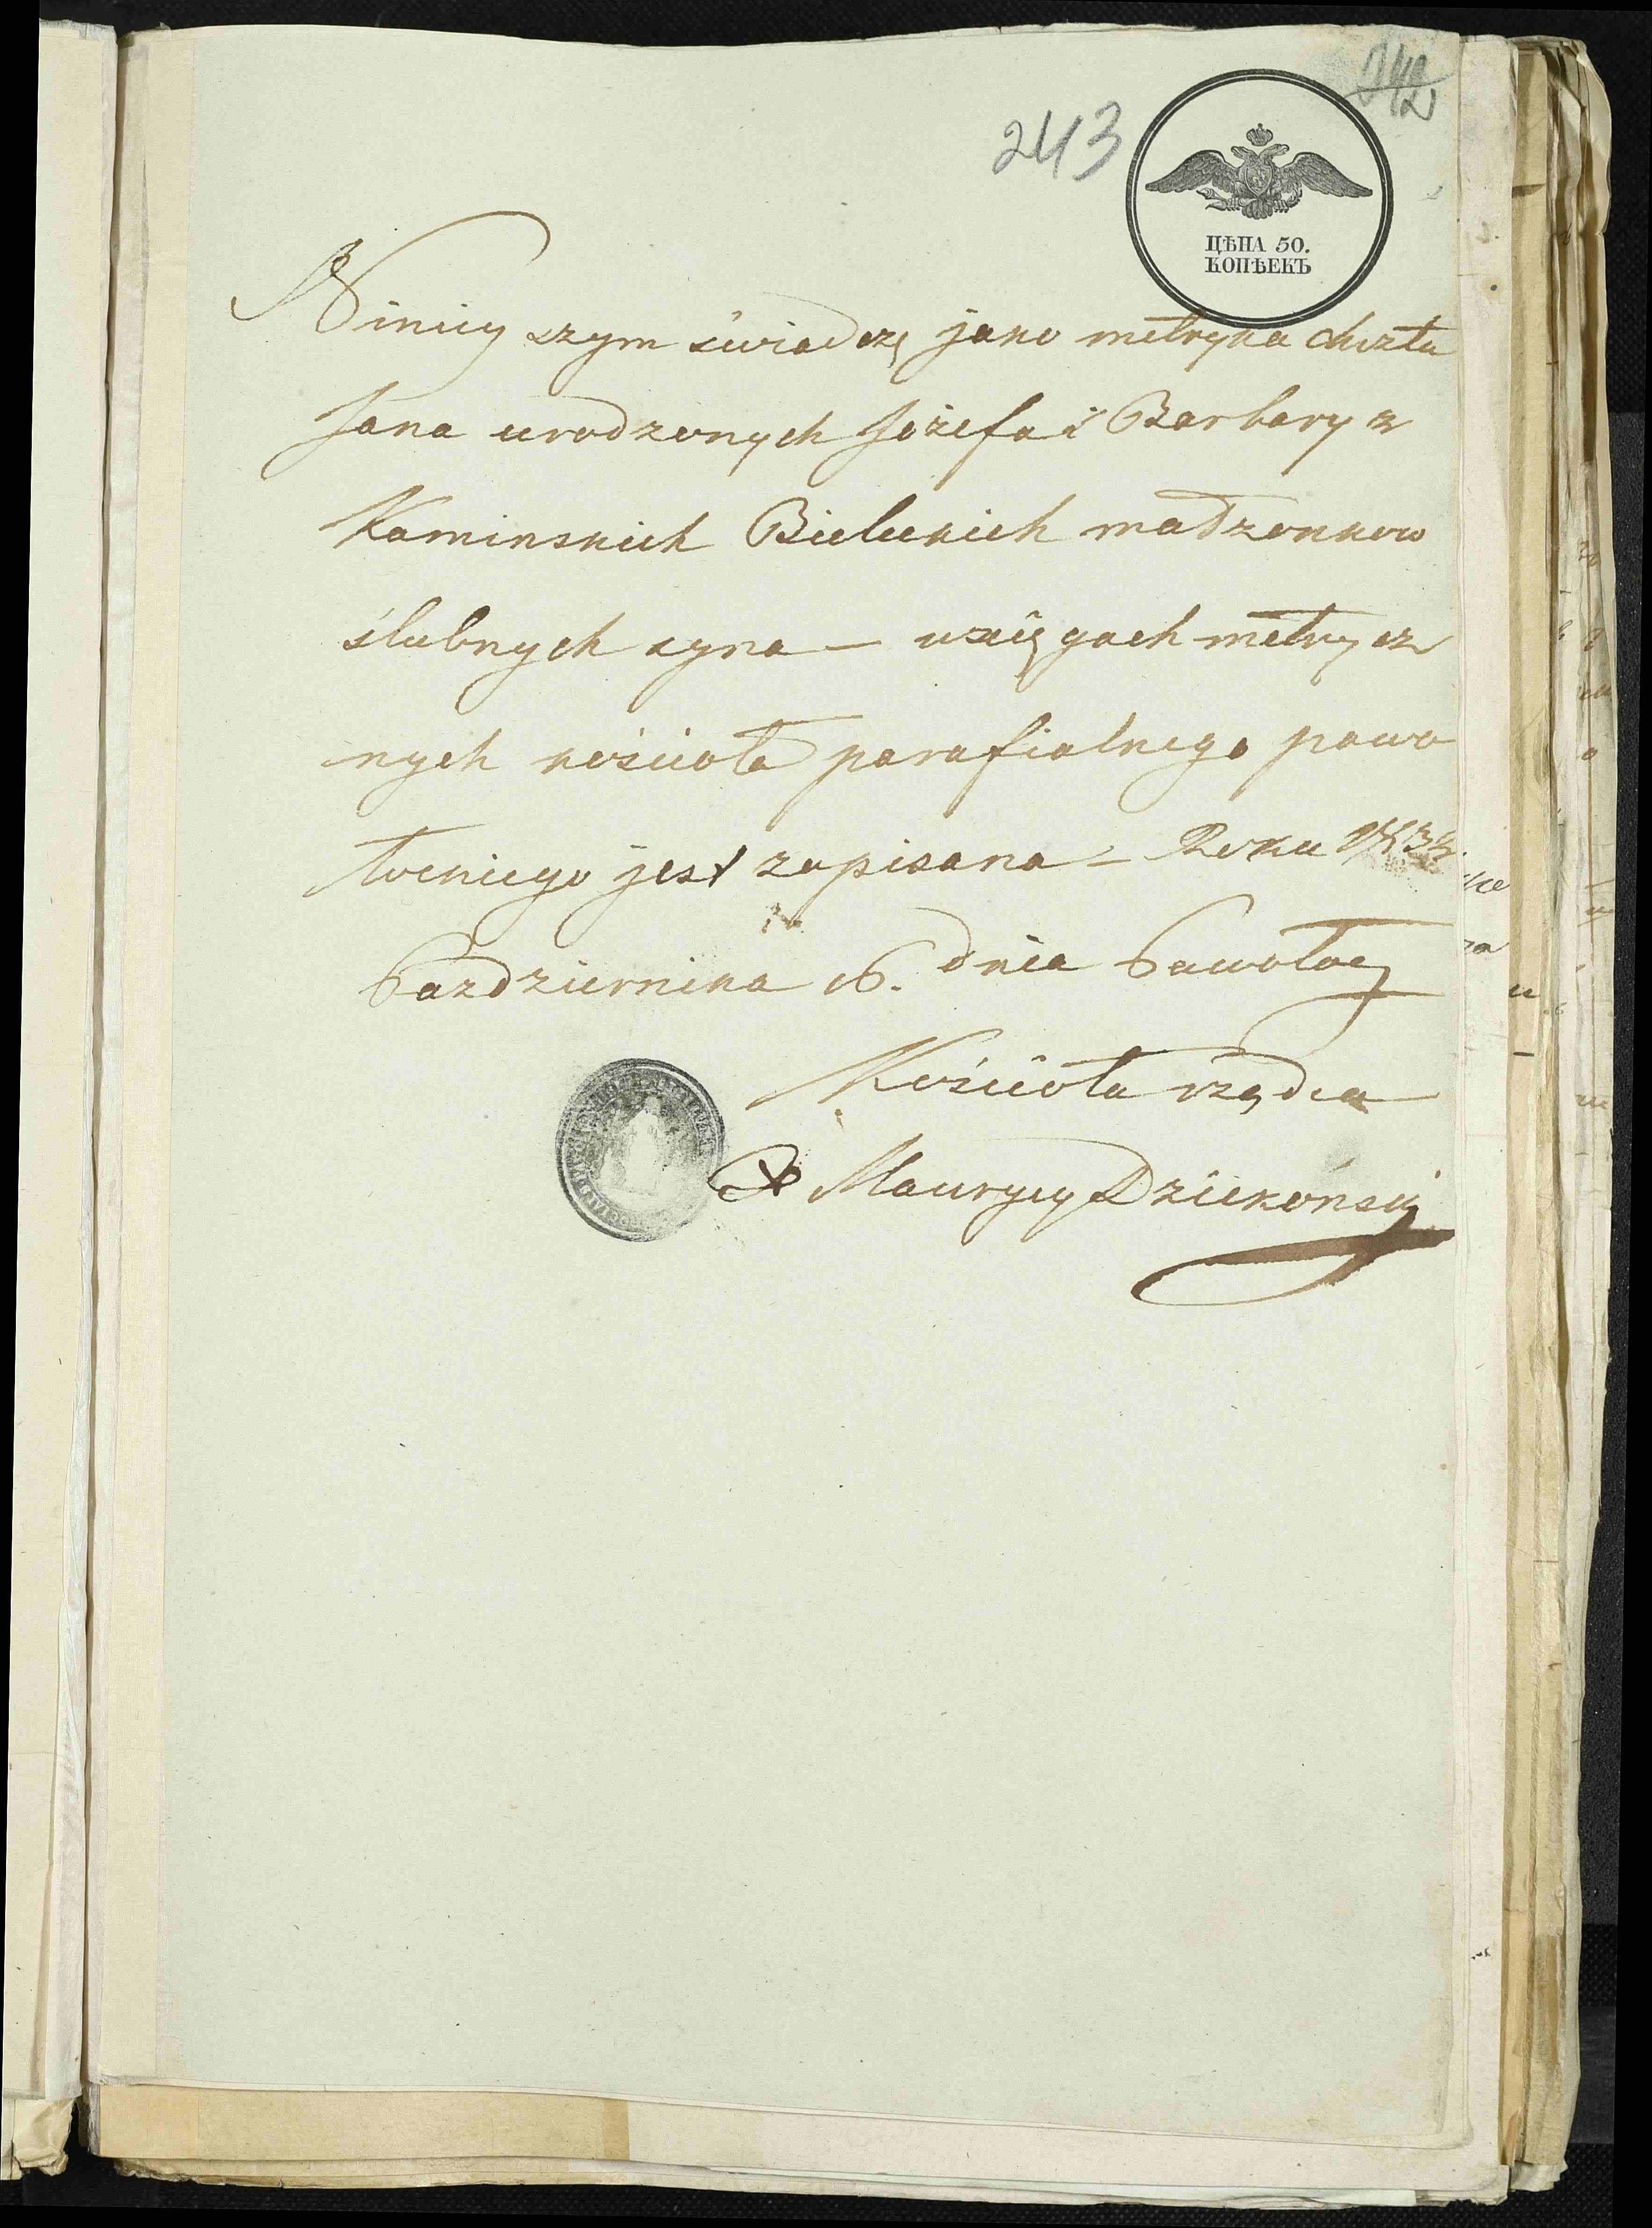 243
ЦѢНА 50.
КОПѢЕКЪ
Ninieyszym świadczę jako metryka chrztu
Jana urodzonych Józefa i Barbary z
Kaminskich Bieleckich małzonkow
ślubnych syna — wxięgach metrycz
nych kościoła parafialnego pawo
łockiego jest zapisana — Roku
Pazdziernika 16. dnia Pawołocz
Kościoła rządca
X Maurycy Dziekoński